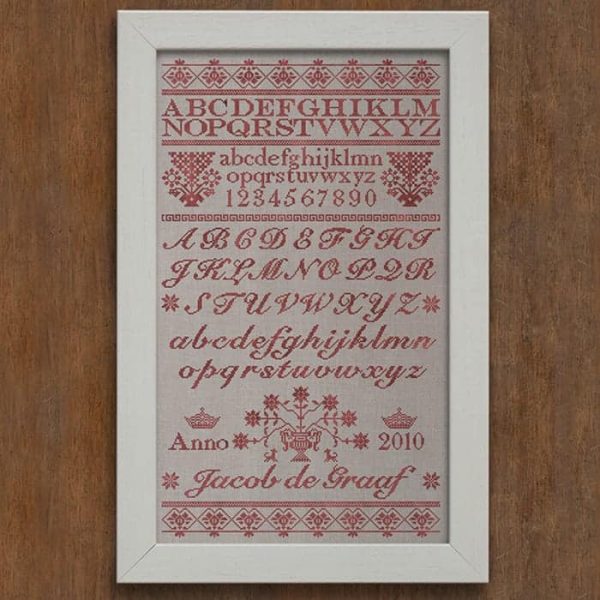 ABCDEFGHIKLM
NOPQRSTVWXYZ
abcdefghijklmn
opqrstuvwxyz
1234567890
ABCDEFGHI
JKLMNOPQR
STUVWXYZ
abcdefghijklmn
opqrstuvwxyz
Anno 2010
Jacob de Graaf